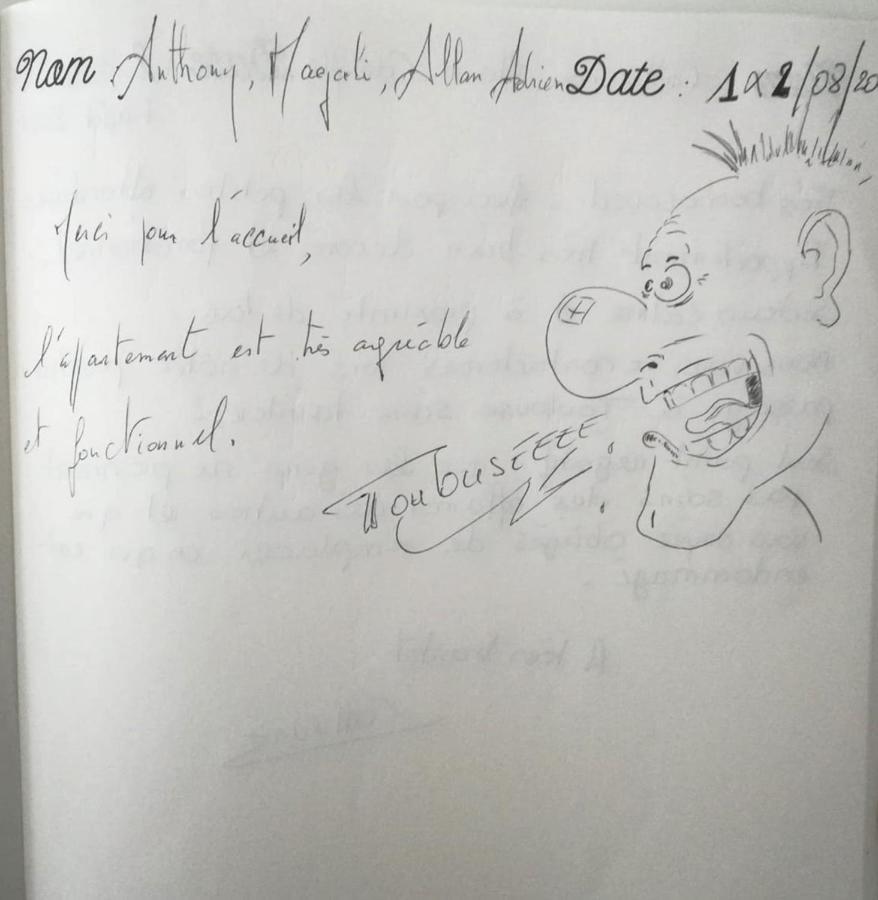 Nom : Anthony, Magali, Allan Adrien Date : 1 & 2/08/20
Merci pour l'accueil,
l'appartement est très agréable
et fonctionnel.
ToulousEEEE !